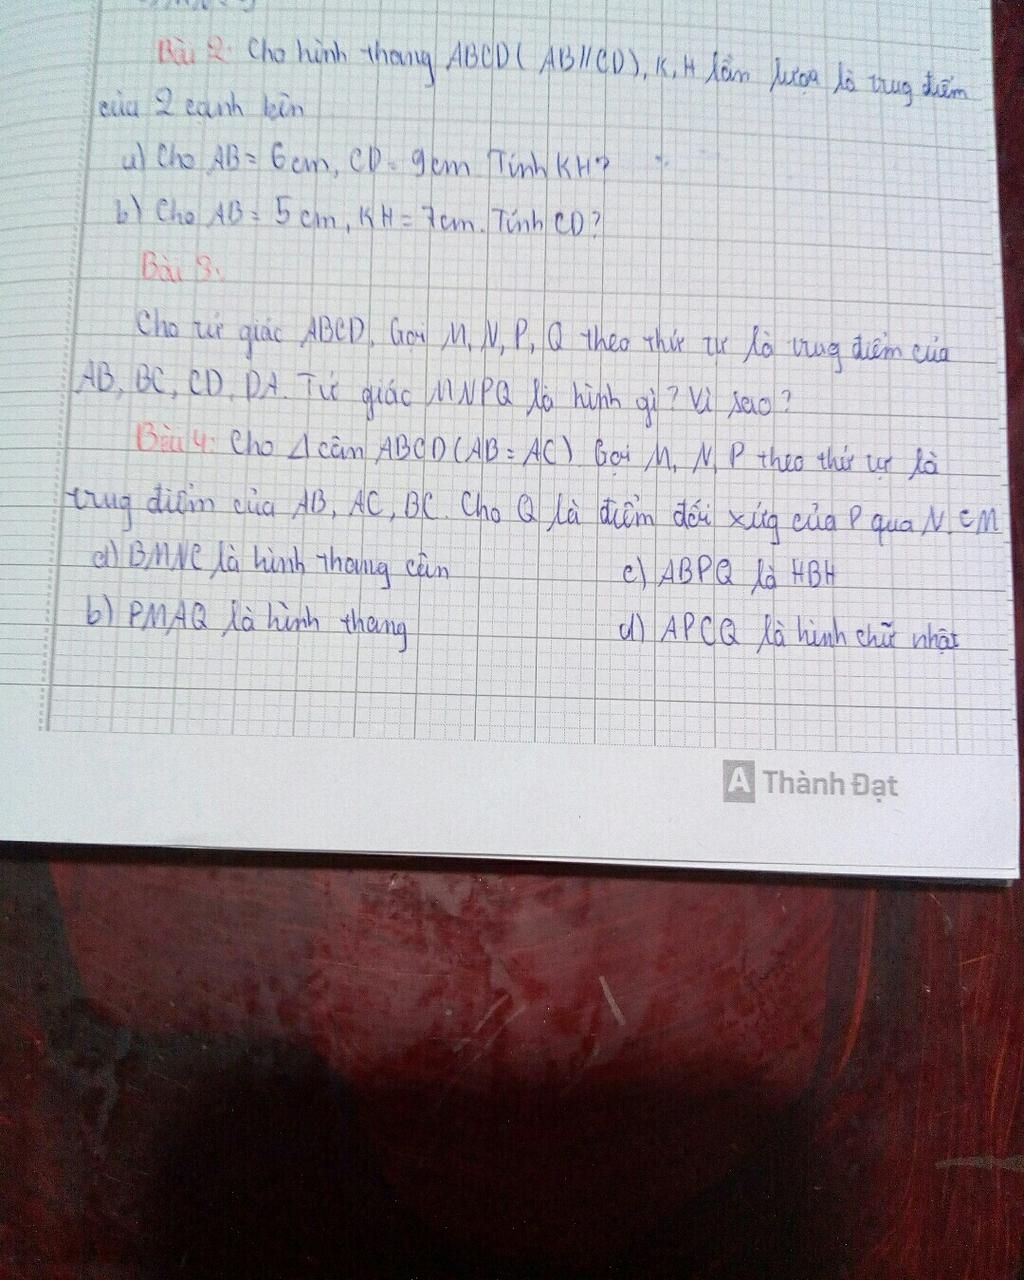 Bài 2: Cho hình thang ABCD ( AB//CD), K, H lần lượt là trug điểm
của 2 cạnh bên
a) Cho AB = 6cm, CD = 9cm Tính KH?
b) Cho AB = 5 cm, KH = 7cm. Tính CD?
Bài 3:
Cho tứ giác ABCD, Gọi M, N, P, Q theo thứ tự là trug điểm của
AB, BC, CD, DA. Tứ giác MNPQ là hình gì? Vì sao?
Bài 4: Cho Δ cân ABCD (AB = AC) Gọi M, N, P theo thứ tự là
trug điểm của AB, AC, BC. Cho Q là điểm đối xứg của P qua N. CM
a) BMNC là hình thang cân
c) ABPQ là HBH
b) PMAQ là hình thang
d) APCQ là hình chữ nhật
A Thành Đạt